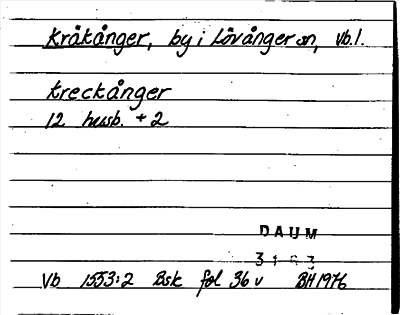 Kråkånger, by i Lövånger sn, Vb.l.
Kreckånger
12 husb. + 2
DAUM
Vb 1553:2 Bsk fol 36 v BH 1976